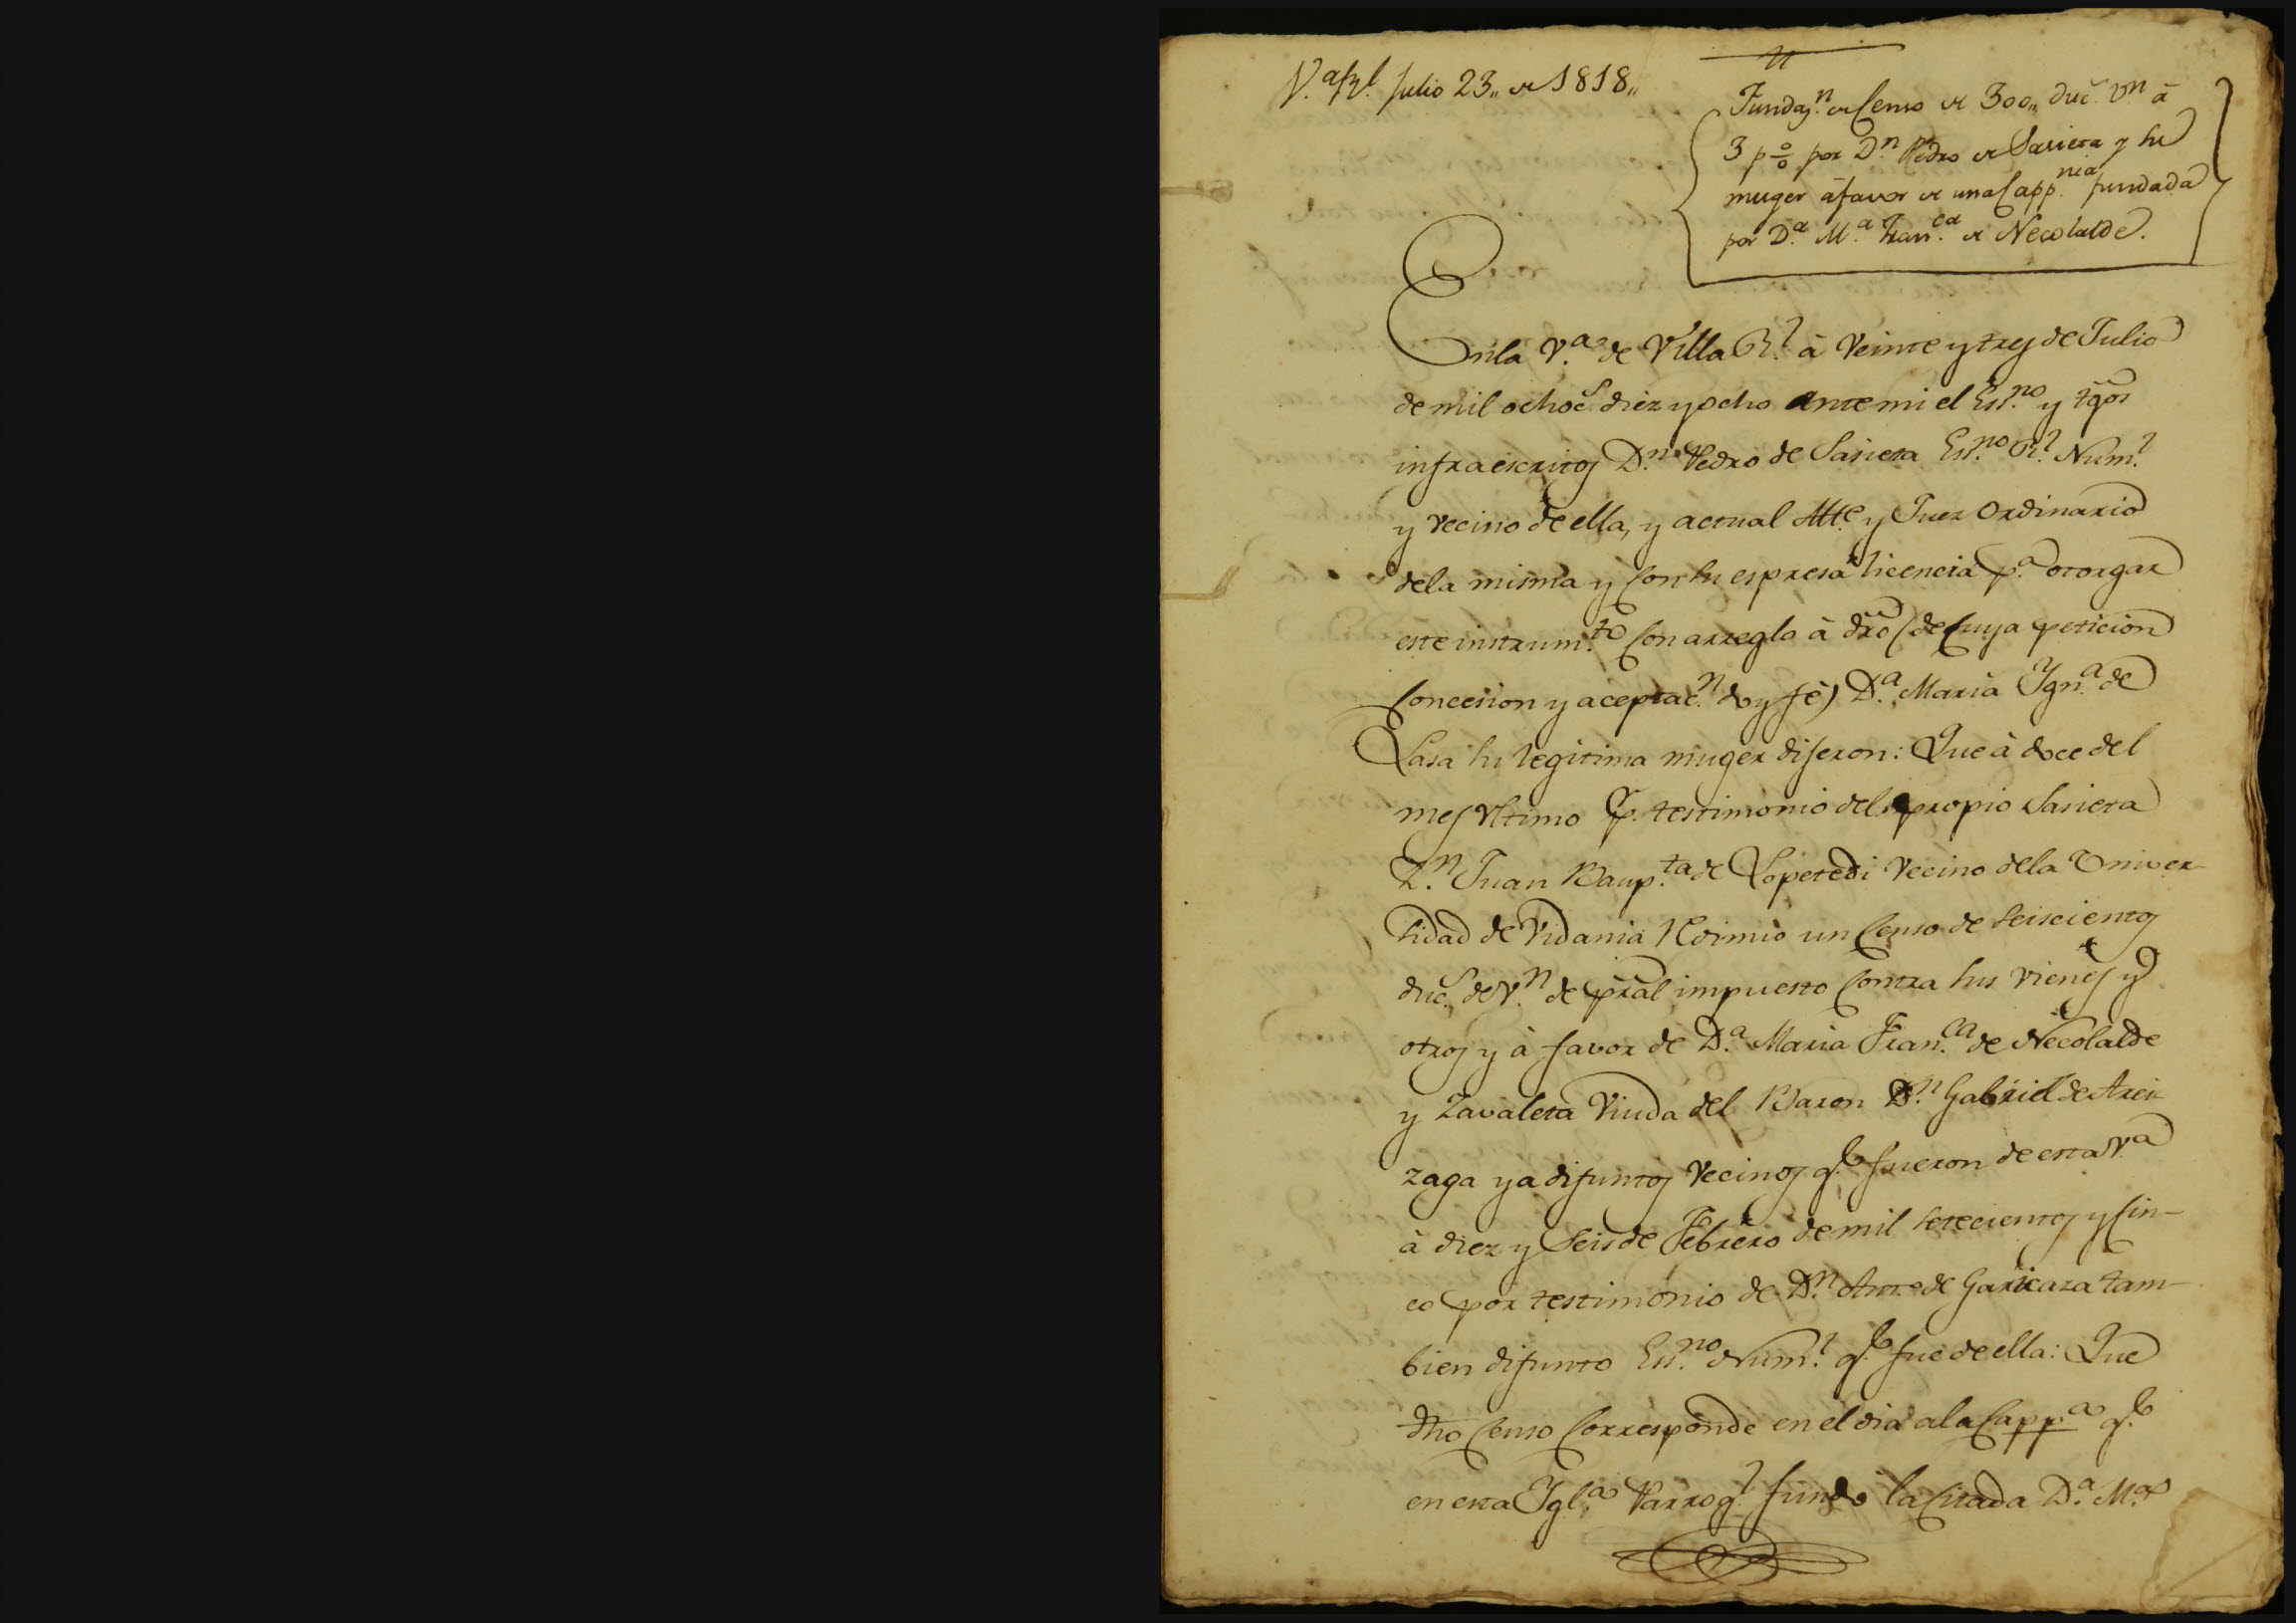 V.ª R.l Julio 23,, de 1818,,
Fundaz.n de Censo de 300,, duc.s v.n à
3 p% por D.n Pedro de Sasieta y su
muger à favor de una Capp.nia fundada
por D.ª M.ª Fran.ca de Necolalde.
En la V.ª de Villa R.l à Veinte y tres de Julio
de mil ochoc.s diez y ocho ante mi el Ess.no y tg̃os
infraescritos D.n Pedro de Sasieta Ess.no R.l Num.l
y Vecino de ella, y actual Alc.e y Juez Ordinario
dela misma y Con su espresa licencia p.ª otorgar
este instrum.to Con arreglo à dr̃o (de Cuya peticion
Concesion y aceptac.n doy fè) D.ª Maria Ygn.ª de
Lasa su legitima muger dijeron: Que à doce del
mes Vltimo p. testimonio del propio Sasieta
D.n Juan Baup.ta de Lopetedi Vecino dela Univer-
sidad de Vidania Redimio un Censo de Seiscientos
duc.s de V.n de pr̃al impuesto Contra sus vienes y
otros y à favor de D.ª Maria Fran.ca de Necolalde
y Zavaleta Viuda del Baron D.n Gabriel de Arei
zaga ya difuntos Vecinos q.e fueron de esta V.ª
à diez y Seis de Febrero de mil Setecientos y Cin-
co por testimonio de D.n Ant.o de Garicaza tam-
bien difunto Ess.no Num.l q.e fue de ella: Que
dho Censo Corresponde en el dia ala Capp.ª q.e
en esta Ygl.ª Parroq.l fundo la Citada D.ª M.ª